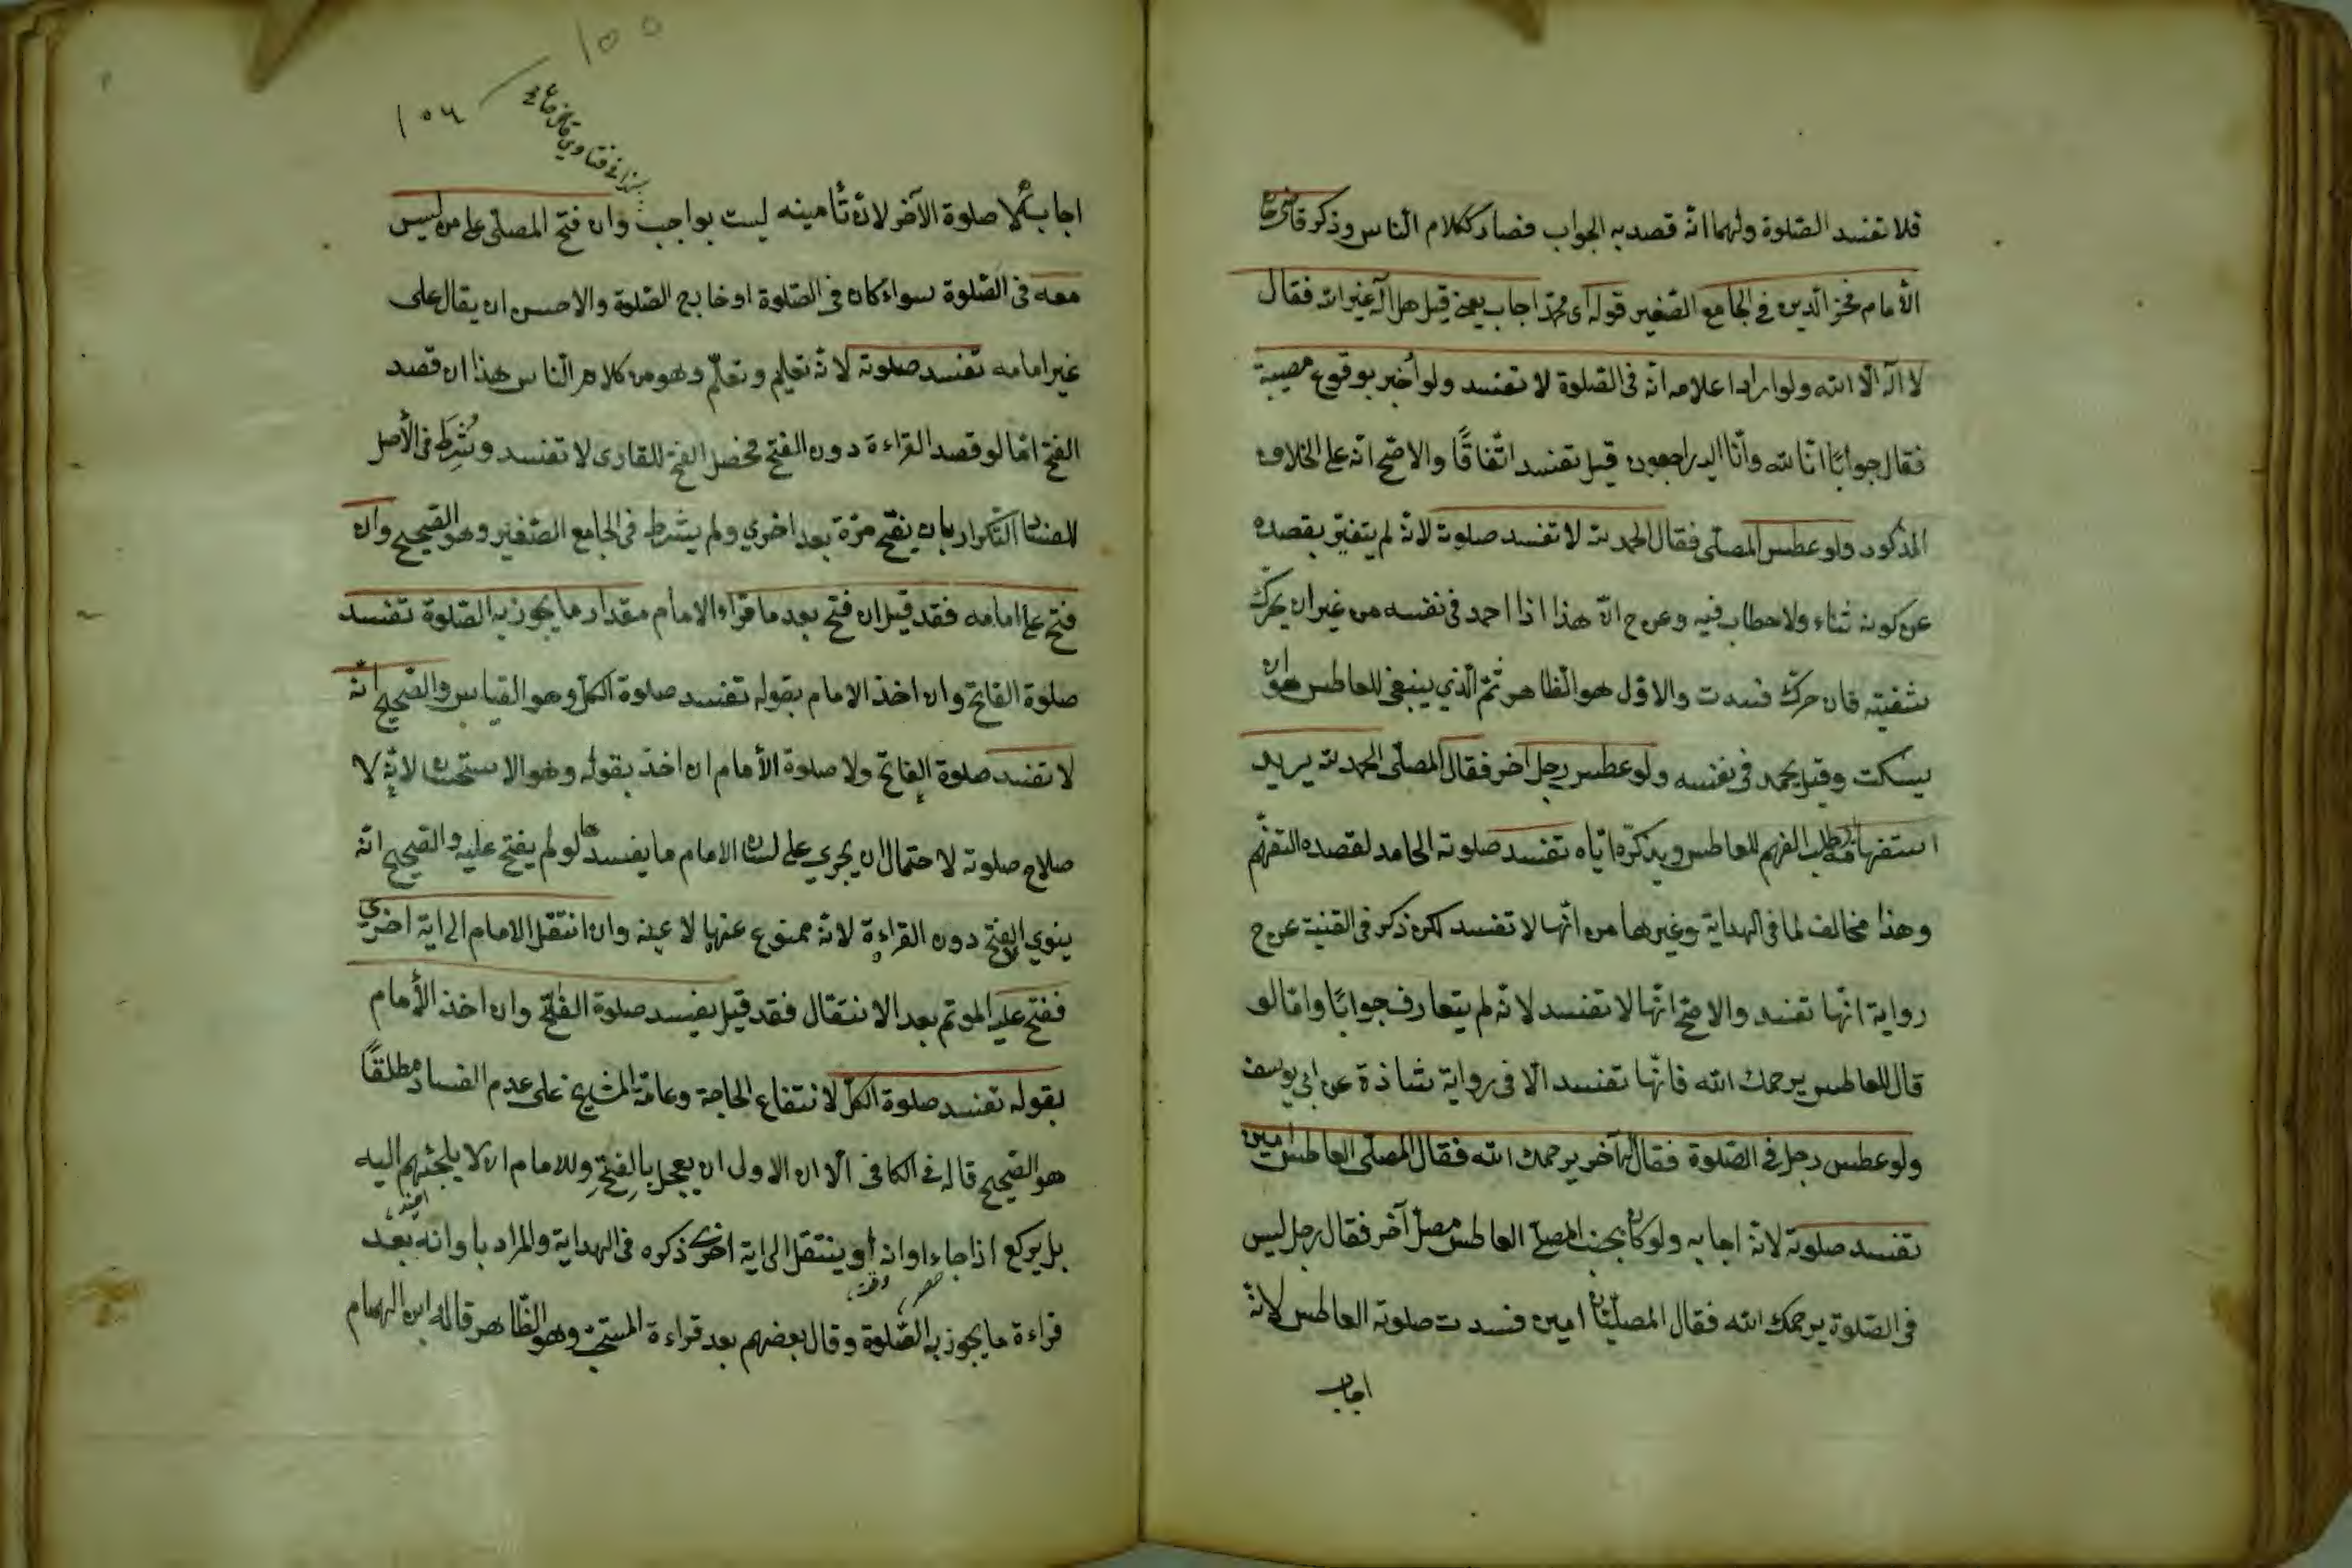 فلا تفسد الصلوة ولهما انه قصد به الجواب فصار ككلام الناس وذكر قاضى خان
الأمام فخر الدين فى الجامع الصغير قوله اى محمد اجاب يعنى قيل هل اله غير الله فقال
لا اله الا الله ولو اراد اعلامه انه فى الصلوة لا تفسد ولو أخبر بوقوع مصيبة
فقال جوابًا انا لله وانا اليه راجعون قيل تفسد اتفاقًا والاصح انه على الخلاف
المذكور ولو عطس المصلى فقال الحمد لله لا تفسد صلوته لانه لم يتغير بقصده
عن كونه ثناء ولا خطاب فيه وعن ح ان هذا اذا احمد فى نفسه من غير ان يحرك
شفتيه فان حرك فسدت والاول هو الظاهر ثم الذي ينبغى للعاطس هو ان
يسكت وقيل يحمد فى نفسه ولو عطس رجل اخر فقال المصلى الحمد لله يريد
استفهامه طلب الفهم للعاطس ويذكره اياه تفسد صلوته الحامد لقصده التفهم
وهذا مخالف لما فى الهداية وغيرها من انها لا تفسد لكن ذكر فى القنية عن ح
رواية انها تفسد والاصح انها لا تفسد لانه لم يتعارف جوابًا واما لو
قال للعاطس يرحمك الله فانها تفسد الا فى رواية شاذة عن ابى يوسف
ولو عطس رجل فى الصلوة فقال له آخر يرحمك الله فقال المصلى العاطس امين
تفسد صلوته لانه اجابه ولو كان بجنب المصلى العاطس مصل آخر فقال رجل ليس
فى الصلوة يرحمك الله فقال المصليان امين فسدت صلوته العاطس لانه
اجاب
١٠٥
١٠٦
اجابه لا صلوة الآخر لان تأمينه ليست بواجب وان فتح المصلى على من ليس
معه فى الصلوة سواء كان فى الصلوة او خارج الصلوة والاحسن ان يقال على
غير امامه تفسد صلوته لانه تعليم وتعلم وهو من كلام الناس هذا ان قصد
الفتح اما لو قصد القراءة دون الفتح فحصل الفتح للقارى لا تفسد وشُرِط فى الأصل
للفساد التكرار بان يفتح مرة بعد اخري ولم يشترط فى الجامع الصغير وهو الصحيح وان
فتح على امامه فقد قيل ان فتح بعد ما قراء الامام مقدار ما يجوز به الصلوة تفسد
صلوة الفاتح وان اخذ الامام بقوله تفسد صلوة الكل وهو القياس والصحيح انه
لا تفسد صلوة الفاتح ولا صلوة الأمام ان اخذ بقوله وهو الاستحسان لانه لا
صلاح صلوته لا حتمال ان يجري على لسان الامام ما يفسدها لو لم يفتح عليه والصحيح انه
ينوي الفتح دون القراءة لانه ممنوع عنها لا عنه وان انتقل الامام الى اية اخري
ففتح عليه الموتم بعد الانتقال فقد قيل يفسد صلوة الفاتح وان اخذ الأمام
بقوله تفسد صلوة الكل لانتفاع الحاجة وعامة المشايخ على عدم الفساد مطلقًا
هو الصحيح قاله فى الكافى الا ان الاولى ان يعجل بالفتح وللامام ان لا يلجئهم اليه
بل يركع اذا جاء اوانه أو ينتقل الى اية اخرى ذكره فى الهداية والمراد باوانه بعد
قراءة ما يجوز به الصلوة وقال بعضهم بعد قراءة المستحب وهو الظاهر قاله ابن الهمام